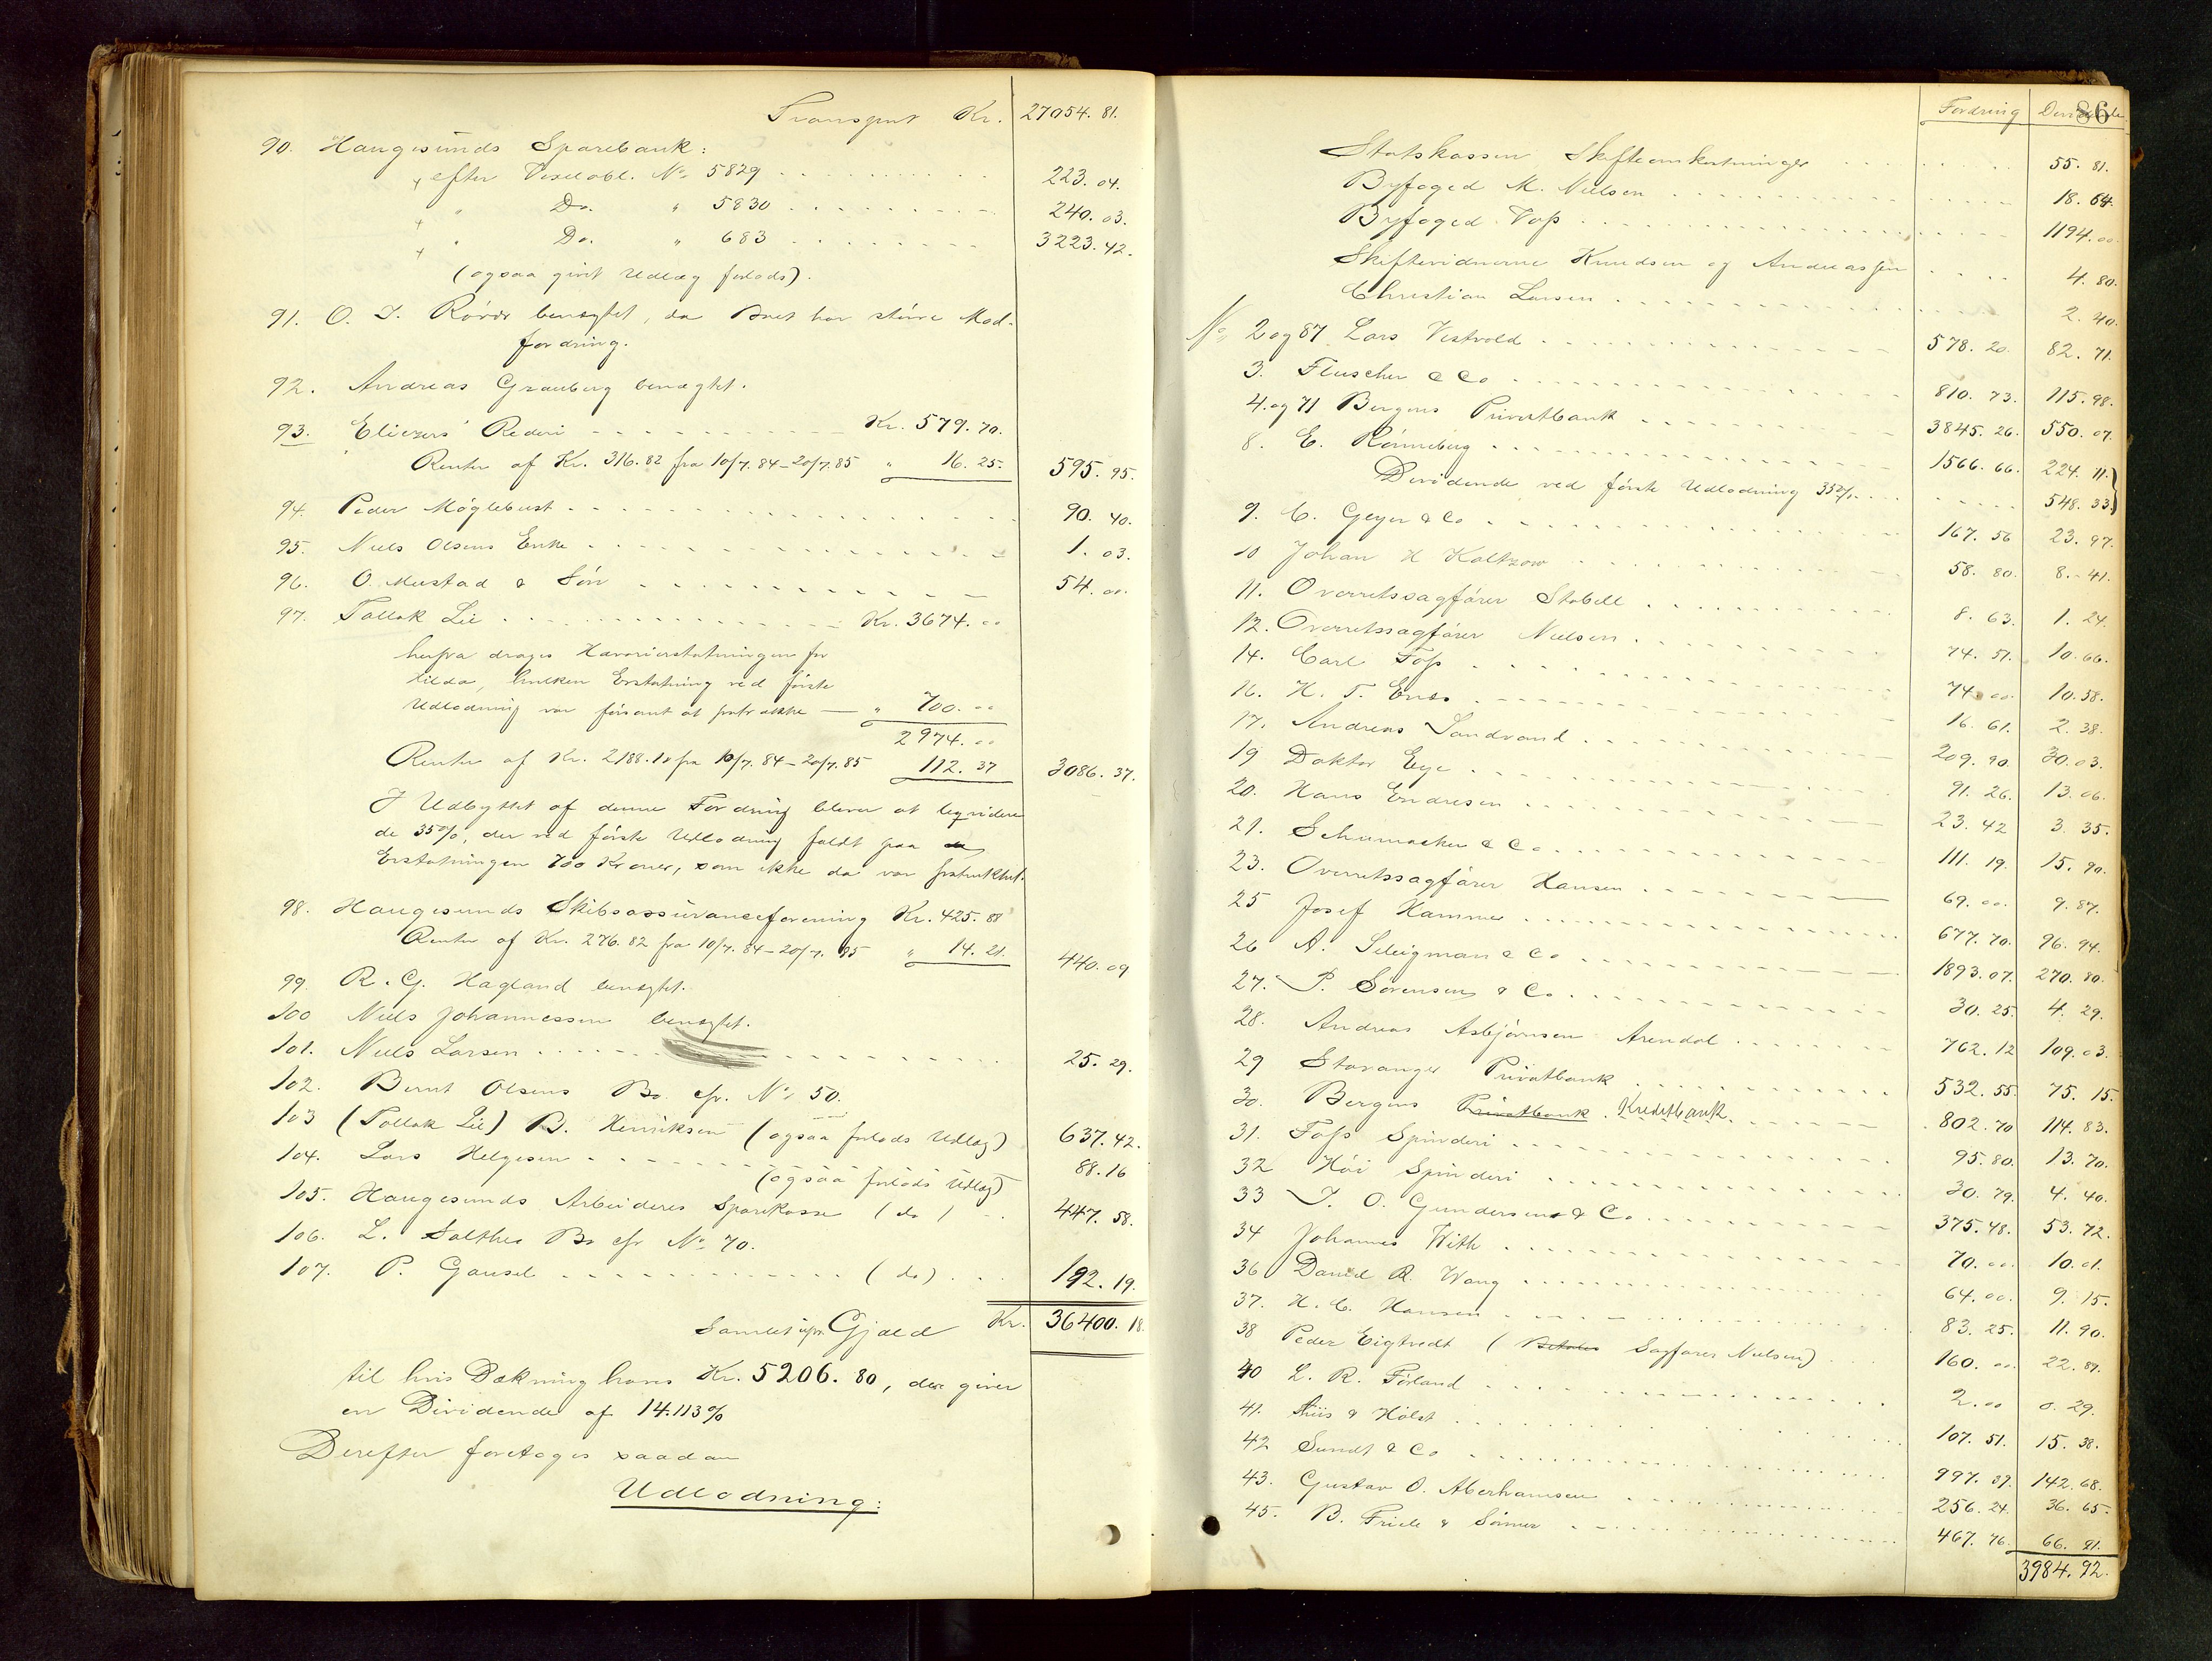 Transport Kr. 27054.81.
90. Haugesunds Sparebank:
efter Vexelobl. No 5829 . . . 223.04.
" Do. " 5830 . . . 240.03.
" Do. " 683 . . . 3223.42.
(ogsaa givet Udlæg forlods).
91. O. I. Rövær benægtet, da Boet har större Mod-
fordring.
92. Andreas Grauberg benægtet.
93. Eliezers' Rederi - - - Kr. 579.70.
Renter af Kr. 316.82 fra 10/7.84-20/7.85 " 16.25. 595.95.
94. Peder Möglebust . . . 90.40.
95. Niels Olsens Enke . . . 1.03.
96. O. Mustad & Sön . . . 54.00.
97. Tollak Lie . . . Kr. 3674.00
herfra drages Havarierstatningen for
Tilda, hvilken Erstatning ved förste
Udlodning var försömt at fratrække — " 700.00
2974.00
Renter af Kr. 2188.18 fra 10/7.84-20/7.85 112.37 3086.37.
I Udbyttet af denne Fordring bliver at liqvidere
de 35%, der ved förste Udlodning faldt paa
Erstatningen 700 Kroner, som ikke da var fratrukket.
98. Haugesunds Skibsassuranceforening Kr. 425.88
Renter af Kr. 276.82 fra 10/7.84-20/7.85 " 14.21. 440.09
99. R. G. Hagland benægtet.
100 Niels Johannessen benægtet.
101. Niels Larsen . . . 25.29.
102. Bernt Olsens Bo cfr. No 50.
103 (Tollak Lie) B. Henriksen (ogsaa forlods Udlæg) 637.42.
104. Lars Helgesen - - - 88.16
(ogsaa forlods Udlæg)
105. Haugesunds Arbeideres Sparekasse (do) - . . 447.58.
106. L. Salthes Bo cfr No 70.
107. P. Gausel - - - (do) . . . 192.19.
Samlet upr. Gjæld Kr. 36400.18.
til hvis Dækning haves Kr. 5206.80, der giver
en Dividende af 14.113%
Derefter foretoges saadan
Udlodning:
86
Fordring Dividende
Statskassen Skifteomkostninger . . . 55.81.
Byfoged M. Nielsen . . . 18.64.
Byfoged Voss . . . 1194.00
Skiftevidnerne Knudsen og Andreassen . . . 4.80.
Christian Larsen . . . 2.40.
No 2 og 87 Lars Vestvold . . . 578.20. 82.71.
3. Fluscher & Co . . . 810.73. 115.98.
4. og 71 Bergens Privatbank . . . 3845.26. 550.07.
8. E. Rönneberg . . . 1566.66. 224.11.
Dividende ved förste Udlodning 35% . . . 548.33.
9. C. Geyer & Co . . . 167.56 23.97.
10 Johan H Koltzow . . . 58.80. 8.41.
11. Overretssagförer Stabell . . . 8.63. 1.24.
12. Overretssagförer Nielsen . . . 74.51. 10.66.
14. Carl Foss . . . 74.00. 10.58.
16. H. T. Enes . . . 16.61. 2.38.
17. Andreas Sandvand . . . 209.90. 30.03.
19 Doktor Eye . . . 91.26. 13.06.
20. Hans Endresen . . . 23.42 3.35.
21. Schumacher & Co . . . 111.19. 15.90.
23. Overretssagförer Hansen . . . 69.00. 9.87.
25 Josef Hammer . . . 677.70. 96.94.
26 A. Seligman & Co . . . 1893.07. 270.80.
27. P. Sörensen & Co . . . 30.25. 4.29.
28. Andreas Asbjörnsen Arendal . . . 762.12 109.03.
29 Stavanger Privatbank . . . 532.55. 75.15.
30. Bergens Privatbank. Kreditbank . . . 802.70 114.83.
31. Foss Spinderi . . . 95.80. 13.70.
32 Höi Spinderi . . . 30.79. 4.40.
33 J. O. Gundersen & Co . . . 375.48. 53.72.
34 Johannes With . . . 70.00. 10.01.
36 Daniel R. Wang . . . 64.00. 9.15.
37. H. C. Hansen . . . 83.25. 11.90.
38 Peder Eigtvedt ( Sagförer Nielsen) . . . 160.00. 22.89.
40 L. R. Förland . . . 2.00 0.29.
41. & Holst . . . 107.51. 15.38.
42 Sundt & Co . . . 997.39. 142.68.
43. Gustav O. Aberhamsen . . . 256.24. 36.65.
45. B. Friele & Sönner . . . 467.76. 66.81.
3984.92.